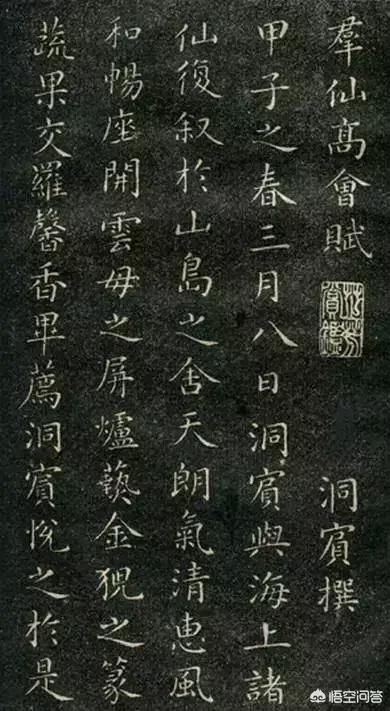 羣仙高會賦
洞賓撰
甲子之春三月八日洞賓與海上諸
仙復叙於山島之舍天朗氣清惠風
和暢座開雲母之屏爐藝金猊之篆
蔬果交羅馨香畢薦洞賓悅之於是
賞鑑
悟空问答